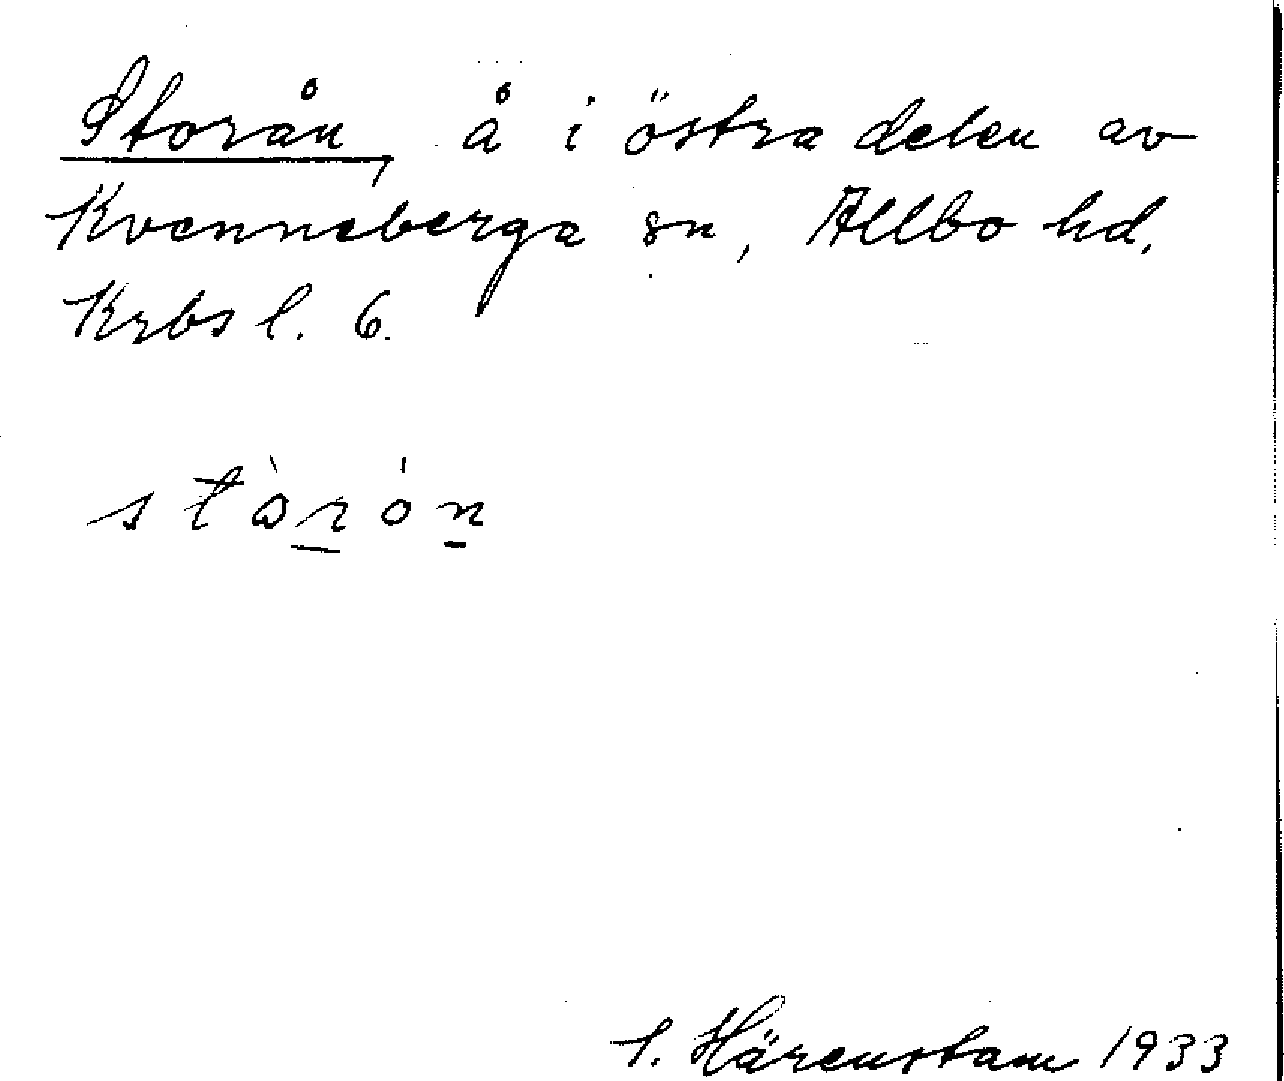 Storån, å i östra delen av
Kvenneberga sn, Allbo hd.
Krbs l. 6.
stὼrón
1. Härenstam 1933